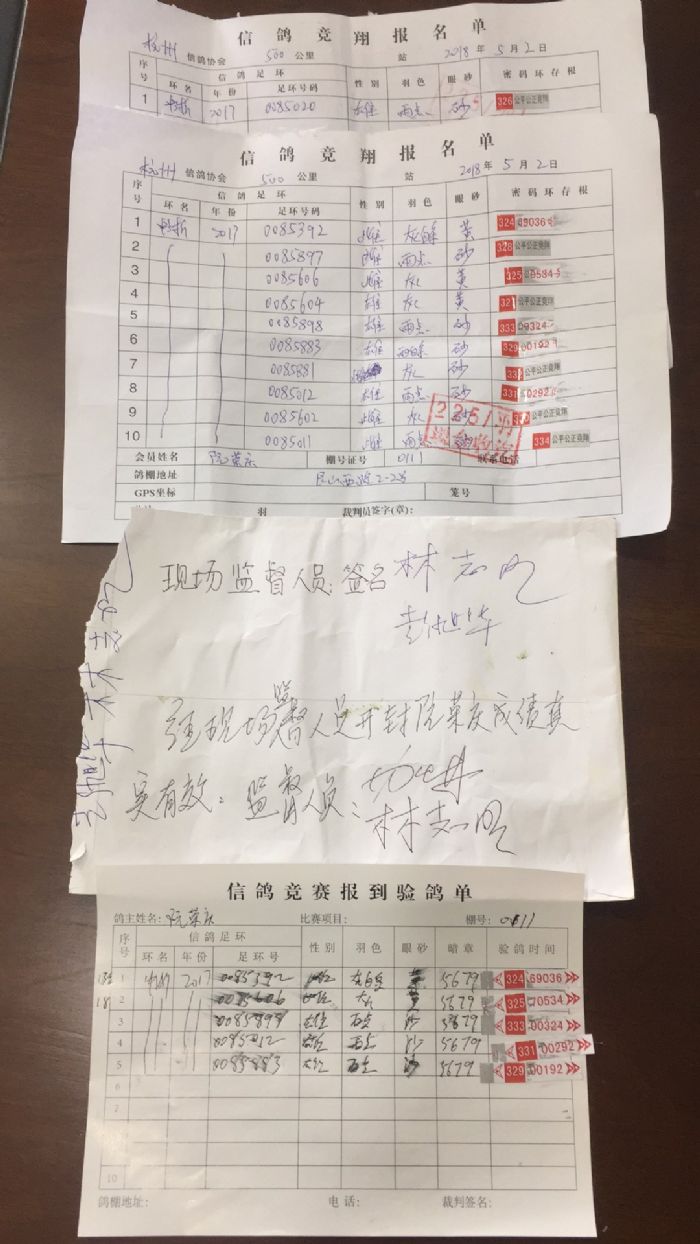 信鸽竞翔报名单
杭州 信鸽协会 500 公里 站 2018 年 5 月 2 日
序号 信鸽足环 性别 羽色 眼砂 密码环存根
环名 年份 足环号码
1 2017 0085020 雄 雨点 砂 326 公平公正竞翔
信鸽竞翔报名单
杭州 信鸽协会 500 公里 站 2018 年 5 月 2 日
序号 信鸽足环 性别 羽色 眼砂 密码环存根
环名 年份 足环号码
1 2017 0085392 雌 灰白条 黄 324 69036
2 0085897 雌 雨点 砂 328 公平公正竞翔
3 0085606 雌 灰 黄 325
4 0085604 雄 灰 黄 321 公平公正竞翔
5 0085898 雄 雨点 砂 333
6 0085883 雄 砂 329 00192
7 0085881 灰 砂 公平公正竞翔
8 0085012 雄 雨点 砂 331 00292
9 0085602 雌 灰 公平公正竞翔
10 0085011 雌 雨点 334 公平公正竞翔
会员姓名 阮荣庆 棚号证号 0111 联系电话
鸽棚地址
GPS坐标 笼号
羽 裁判员签字(章):
现场监督人员:签名 林志明
彭旭华
经现场监督人员开封阮荣庆成绩真
实有效。监督人员:
林志明
信鸽竞赛报到验鸽单
鸽主姓名: 阮荣庆 比赛项目: 棚号:
序号 信鸽足环 性别 羽色 眼砂 暗章 验鸽时间
环名 年份 足环号
1 2017 0085392 灰白条 5679 324 69036
2 灰 5679 325
3 0085898 雄 雨点 砂 5679 333 00324
4 0085012 雄 雨点 砂 5679 331 00292
5 0085883 雄 砂 5679 329 00192
6
7
8
9
10
鸽棚地址: 电话: 裁判签名: